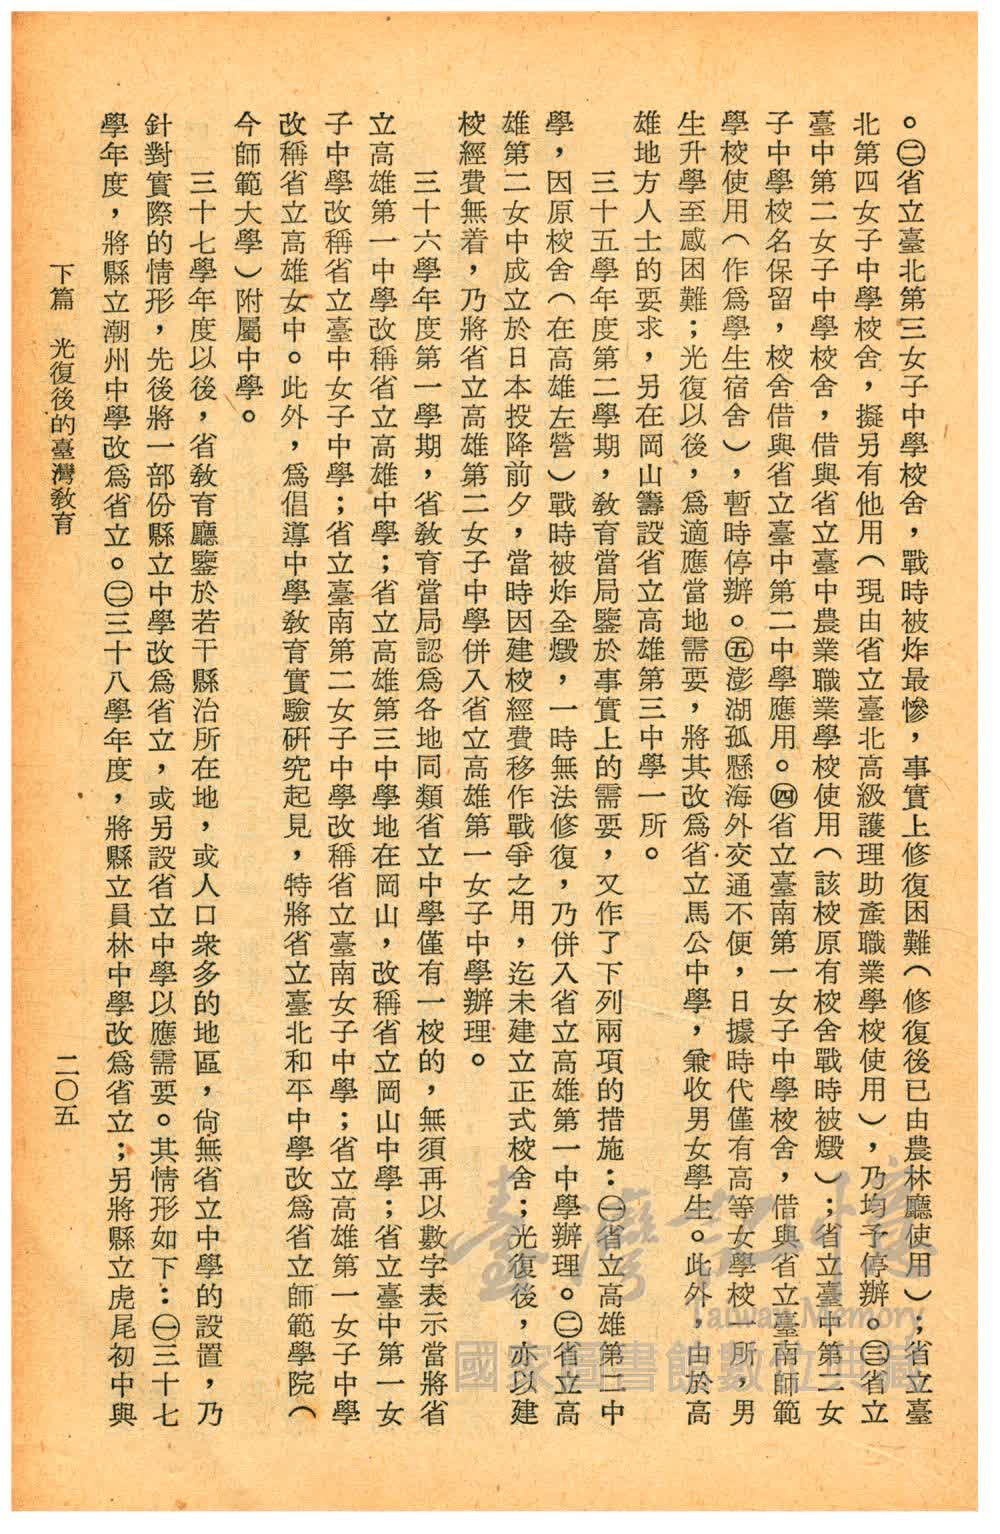 。㊁省立臺北第三女子中學校舍，戰時被炸最慘，事實上修復困難（修復後已由農林廳使用）；省立臺
北第四女子中學校舍，擬另有他用（現由省立臺北高級護理助產職業學校使用），乃均予停辦。㊂省立
臺中第二女子中學校舍，借與省立臺中農業職業學校使用（該校原有校舍戰時被燬）；省立臺中第二女
子中學校名保留，校舍借與省立臺中第二中學應用。㊃省立臺南第一女子中學校舍，借與省立臺南師範
學校使用（作爲學生宿舍），暫時停辦。㊄澎湖孤懸海外交通不便，日據時代僅有高等女學校一所，男
生升學至感困難；光復以後，爲適應當地需要，將其改爲省立馬公中學，兼收男女學生。此外，由於高
雄地方人士的要求，另在岡山籌設省立高雄第三中學一所。
三十五學年度第二學期，敎育當局鑒於事實上的需要，又作了下列兩項的措施：㊀省立高雄第二中
學，因原校舍（在高雄左營）戰時被炸全燬，一時無法修復，乃併入省立高雄第一中學辦理。㊁省立高
雄第二女中成立於日本投降前夕，當時因建校經費移作戰爭之用，迄未建立正式校舍；光復後，亦以建
校經費無着，乃將省立高雄第二女子中學併入省立高雄第一女子中學辦理。
三十六學年度第一學期，省敎育當局認爲各地同類省立中學僅有一校的，無須再以數字表示當將省
立高雄第一中學改稱省立高雄中學；省立高雄第三中學地在岡山，改稱省立岡山中學；省立臺中第一女
子中學改稱省立臺中女子中學；省立臺南第二女子中學改稱省立臺南女子中學；省立高雄第一女子中學
改稱省立高雄女中。此外，爲倡導中學敎育實驗硏究起見，特將省立臺北和平中學改爲省立師範學院（
今師範大學）附屬中學。
三十七學年度以後，省敎育廳鑒於若干縣治所在地，或人口衆多的地區，尙無省立中學的設置，乃
針對實際的情形，先後將一部份縣立中學改爲省立，或另設省立中學以應需要。其情形如下：㊀三十七
學年度，將縣立潮州中學改爲省立。㊁三十八學年度，將縣立員林中學改爲省立；另將縣立虎尾初中與
下篇　光復後的臺灣敎育
二〇五
臺灣記憶
Taiwan Memory
國家圖書館數位典藏